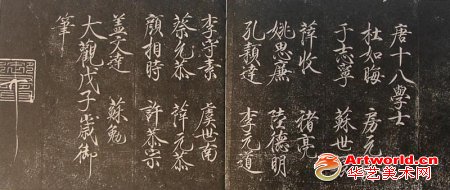 唐十八學士
杜如晦 房元
于志寧 蘇世
薛收 褚亮
姚思廉 陸德明
孔穎達 李元道
李守素 虞世南
蔡元恭 薛元恭
顏相時 許恭宗
蓋文達 蘇勉
大觀戊子歲御
筆
Artworld.cn
华艺美术网